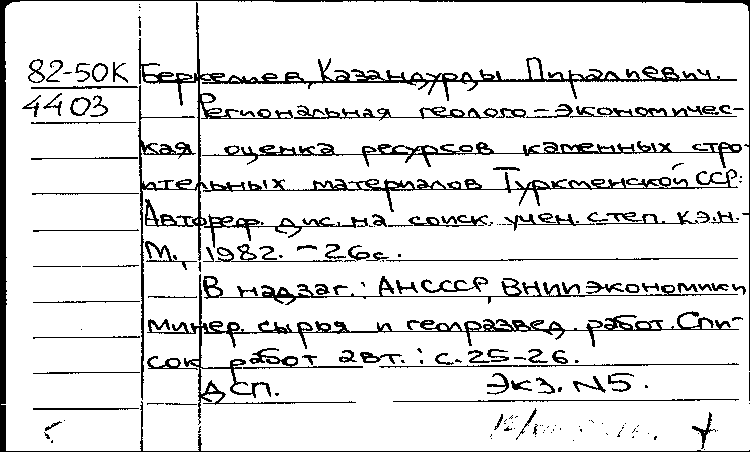 82-50К Беркелиев, Казандурды Пиралиевич.
4403 Региональная геолого-экономичес-
кая оценка ресурсов каменных стро-
ительных материалов Туркменской ССР:
Автореф. дис. на соиск. учен. степ. к.э.н.-
М., 1982. - 26с.
В надзаг.: АНСССР, ВНИИэкономики
минер. сырья и геолразвед. работ. Спи-
сок работ авт.: с.25-26.
ДСП. Экз. N5.